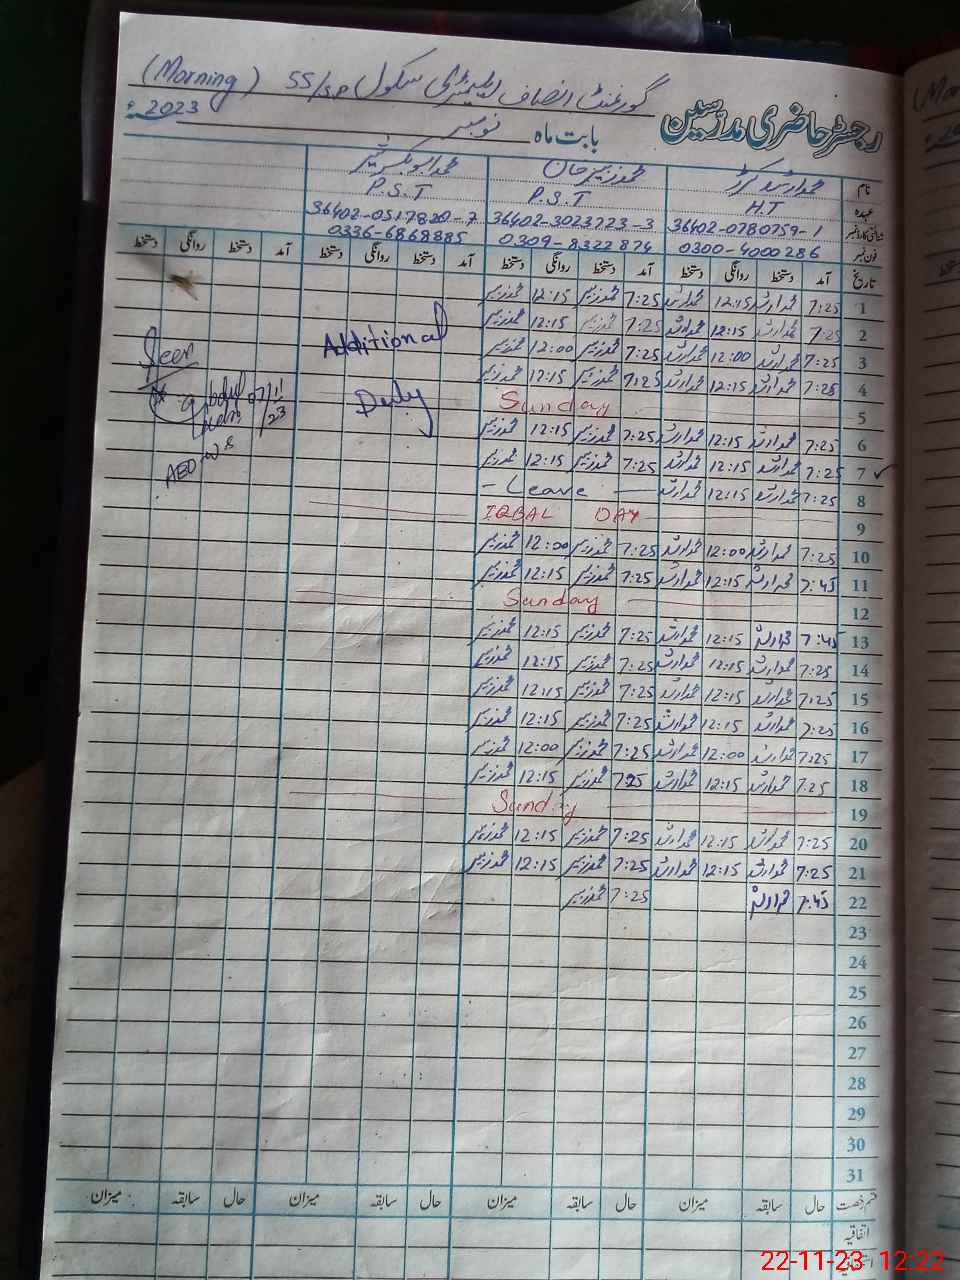 گورنمنٹ انصاف ایلیمنٹری سکول 55/SP (Morning)
رجسٹر حاضری مدرسین
بابت ماہ نومبر 2023ء
نام محمد ارشد محمد زبیر خان محمد ابوبکر
عہدہ H.T P.S.T P.S.T
شناختی کارڈ نمبر 36402-0780759-1 36402-3023723-3 36402-0517820-7
فون نمبر 0300-4000286 0309-8322874 0336-6868885
تاریخ آمد دستخط روانگی دستخط آمد دستخط روانگی دستخط آمد دستخط روانگی دستخط آمد دستخط روانگی دستخط
1 7:25 محمد ارشد 12:15 محمد ارشد 7:25 محمد زبیر 12:15 محمد زبیر
2 7:25 محمد ارشد 12:15 محمد ارشد 7:25 محمد زبیر 12:15 محمد زبیر
Additional
3 7:25 محمد ارشد 12:00 محمد ارشد 7:25 محمد زبیر 12:00 محمد زبیر
Seen
4 7:25 محمد ارشد 12:15 محمد ارشد 7:25 محمد زبیر 12:15 محمد زبیر
Duty
07/11/23
5 Sunday
6 7:25 محمد ارشد 12:15 محمد ارشد 7:25 محمد زبیر 12:15 محمد زبیر
AEO
7 ✓ 7:25 محمد ارشد 12:15 محمد ارشد 7:25 محمد زبیر 12:15 محمد زبیر
8 7:25 محمد ارشد 12:15 محمد ارشد - Leave -
9 IQBAL DAY
10 7:25 محمد ارشد 12:00 محمد ارشد 7:25 محمد زبیر 12:00 محمد زبیر
11 7:45 محمد ارشد 12:15 محمد ارشد 7:25 محمد زبیر 12:15 محمد زبیر
12 Sunday
13 7:45 محمد ارشد 12:15 محمد ارشد 7:25 محمد زبیر 12:15 محمد زبیر
14 7:25 محمد ارشد 12:15 محمد ارشد 7:25 محمد زبیر 12:15 محمد زبیر
15 7:25 محمد ارشد 12:15 محمد ارشد 7:25 محمد زبیر 12:15 محمد زبیر
16 7:25 محمد ارشد 12:15 محمد ارشد 7:25 محمد زبیر 12:15 محمد زبیر
17 7:25 محمد ارشد 12:00 محمد ارشد 7:25 محمد زبیر 12:00 محمد زبیر
18 7:25 محمد ارشد 12:15 محمد ارشد 7:25 محمد زبیر 12:15 محمد زبیر
19 Sunday
20 7:25 محمد ارشد 12:15 محمد ارشد 7:25 محمد زبیر 12:15 محمد زبیر
21 7:25 محمد ارشد 12:15 محمد ارشد 7:25 محمد زبیر 12:15 محمد زبیر
22 7:45 محمد ارشد 7:25 محمد زبیر
23
24
25
26
27
28
29
30
31
قسم رخصت حال سابقہ میزان حال سابقہ میزان حال سابقہ میزان حال سابقہ میزان
اتفاقیہ
22-11-23 12:22